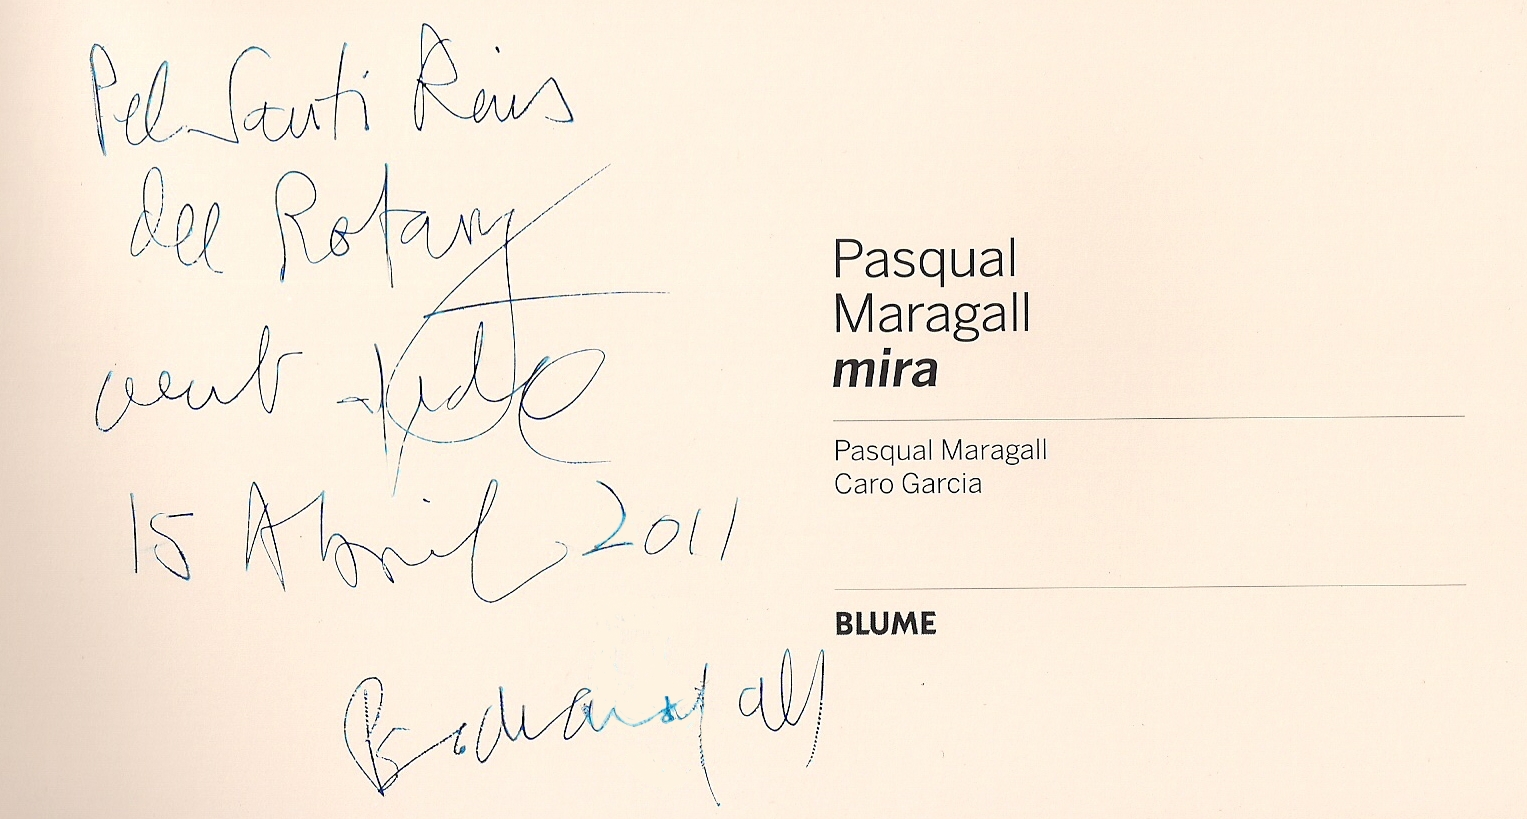 Pel Santi Reius
del Rotary
amb
15 Abril 2011
Pasqual
Maragall
mira
Pasqual Maragall
Caro Garcia
BLUME